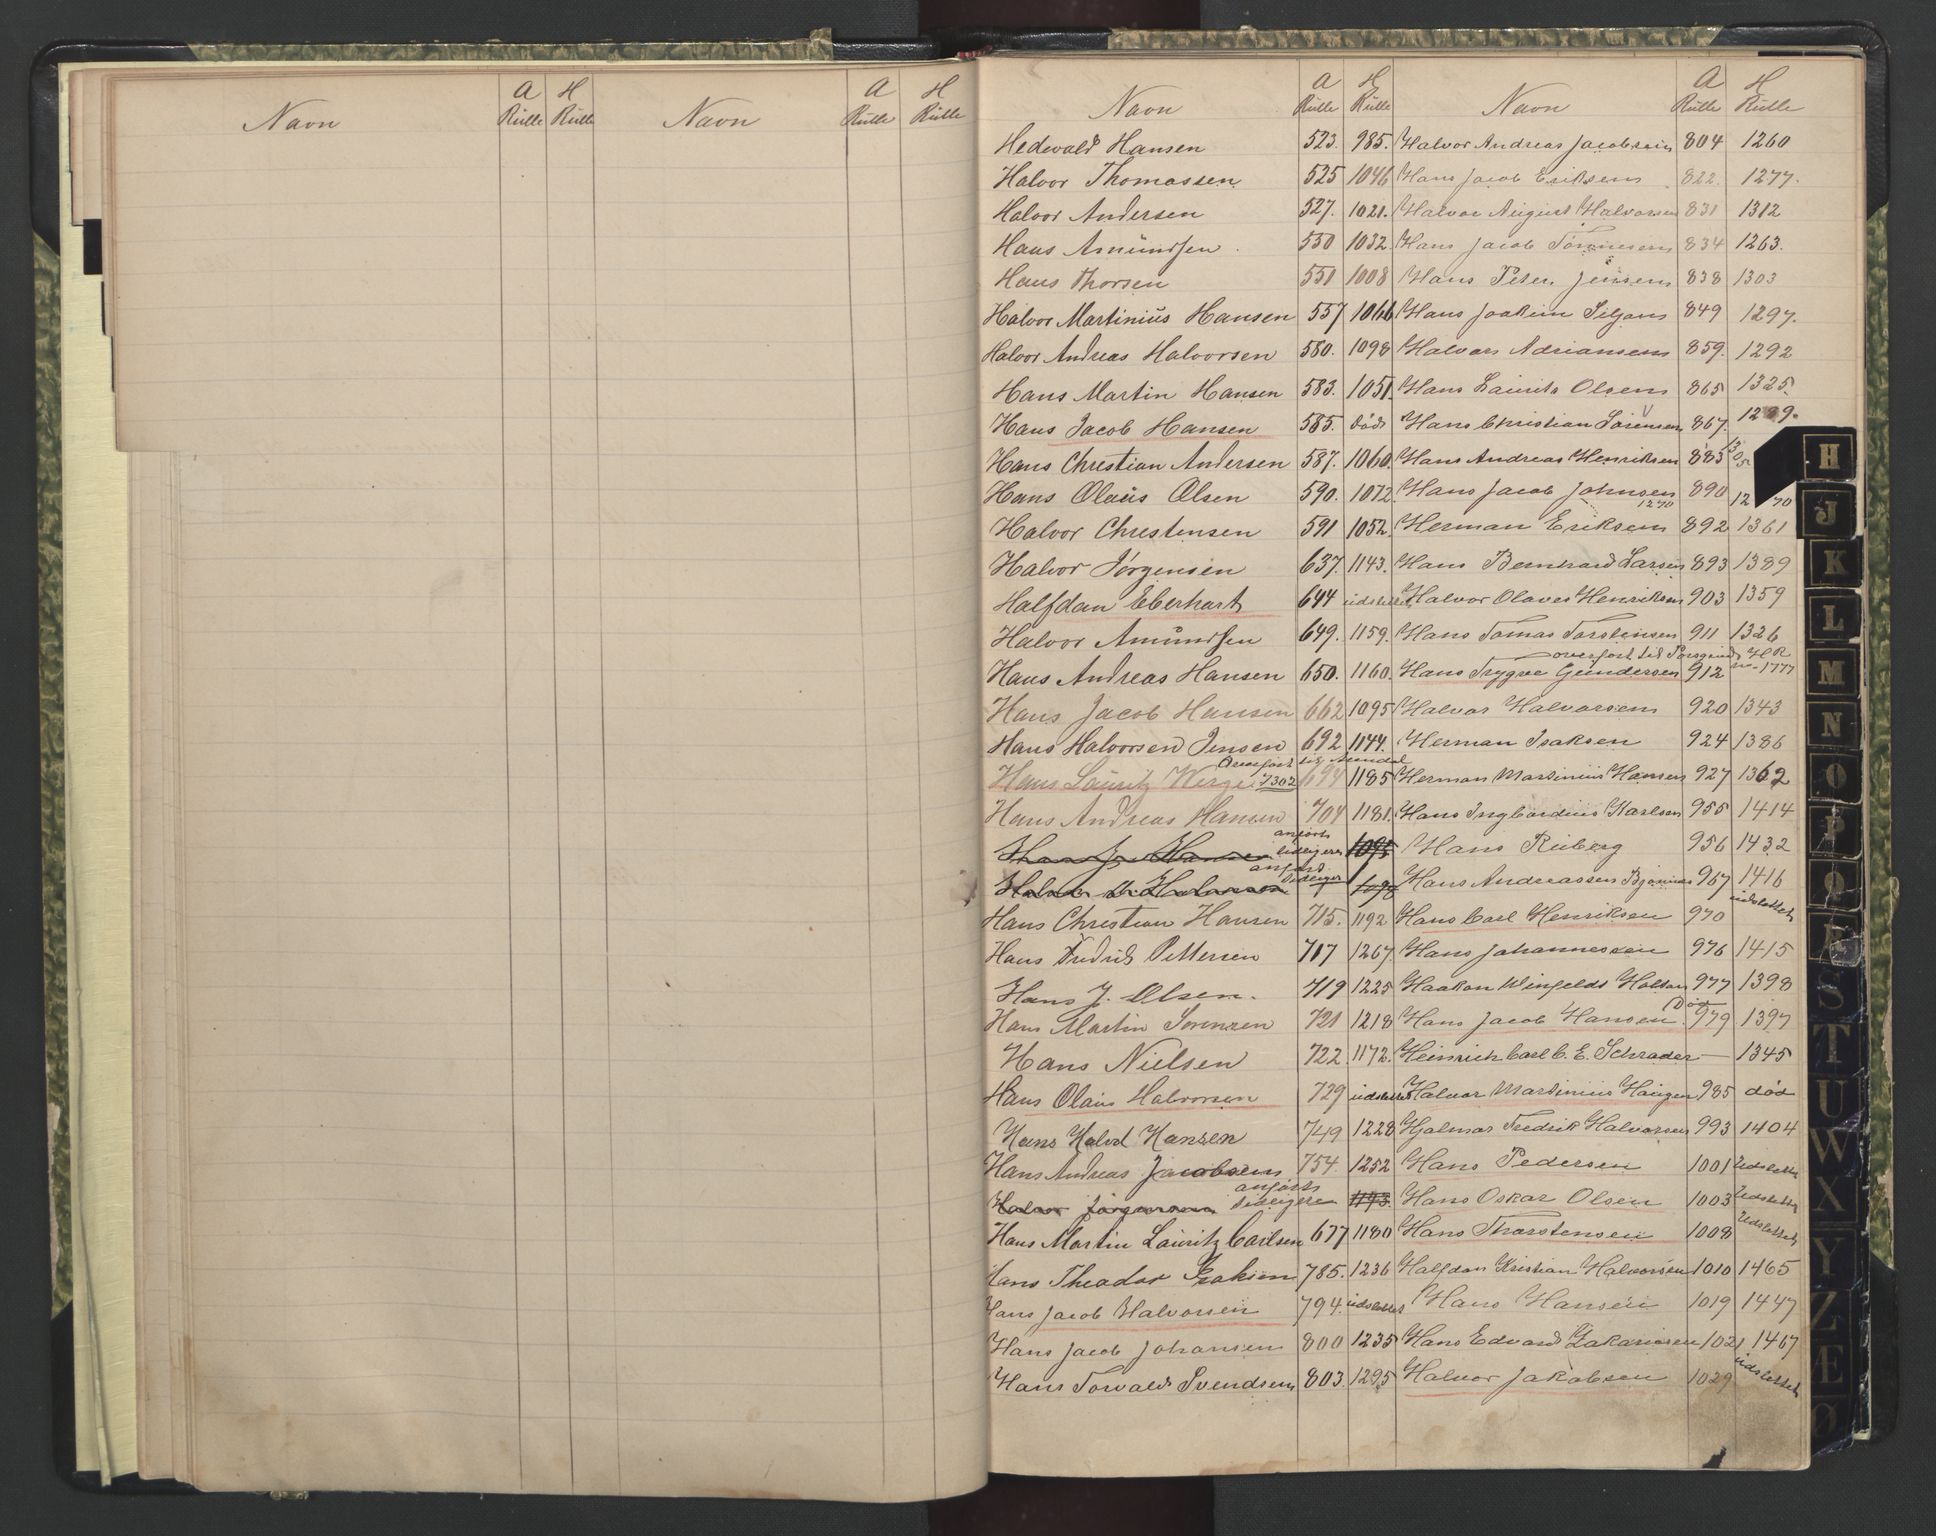 Navn A Rulle H Rulle Navn A Rulle H Rulle
Navn A Rulle H Rulle Navn A Rulle H Rulle
Hedevald Hansen 523. 985. Halvor Andreas Jacobsen 804 1260
Halvor Thomassen 525 1046 Hans Jacob Eriksen 822. 1277.
Halvor Andersen 527. 1021. Halvor August Halvorsen 831 1312
Hans Amundsen 550 1032. Hans Jacob 834 1263.
Hans Thorsen 551 1008 Hans Peter Jensen 838 1303
Halvor Martinius Hansen 557 1066 Hans Joakim Siljans 849 1297.
Halvor Andreas Halvorsen 580. 1098 Halvor Adriansen 859. 1292
Hans Martin Hansen 583. 1051. Hans Laurits Olsen 865 1325.
Hans Jacob Hansen 585. død Hans Christian Sørensen 867.
Hans Christian Andersen 587. 1060. Hans Andreas Henriksen 885 1305
Hans Olaus Olsen 590. 1072. Hans Jacob Johnsen 1270 890 1270
Halvor Christensen 591 1052. Herman Eriksen 892 1361
Halvor Jørgensen 637. 1143. Hans Bernhard Larsen 893 1389
Halfdan Eberhart 644 udslettet Halvor Olaves Henriksen 903 1359
Halvor Amundsen 649. 1159. Hans Tomas Torstensen 911 1326
overført til Porsgrund HR
Hans Andreas Hansen 650. 1160. Hans Trygve Gundersen 912 no-1777
Hans Jacob Hansen 662 1095 Halvor Halvorsen 920 1343
Hans Halvorsen Jensen 692 1144. Herman Isaksen 924 1386
Overført til Arendal
Hans Lauritz Werge 7302 694 1185 Herman Martinius Hansen 927 1362
Hans Andreas Hansen 704 1181. Hans Ingbardius Karlsen 955 1414
anført
Hans J. Hansen tidligere 1095 Hans Ruberg 956 1432
anført
Halvor A. Halvorsen tidligere 1098 Hans Andreassen 967 1416
Hans Christian Hansen 715. 1192 Hans Carl Henriksen 970 udslettet
Hans Fredrik Pettersen 717 1267. Hans Johannessen 976 1415
Hans J. Olsen. 719 1225 Haakon Winfelds Holtan 977 1398
Død
Hans Martin Sørensen 721 1218 Hans Jacob Hansen 979 1397
Hans Nielsen 722. 1172. Heinrich Carl C. E. Schrader — 1345
Hans Olaus Halvorsen 729 udslettet Halvor Martinius Haugen 985 død
Hans Halvd Hansen 749 1228 Hjalmar Fredrik Halvorsen 993 1404
Hans Andreas Jacobsen 754. 1252 Hans Pedersen 1001 Udslettet
anført
Halvor Jørgensen tidligere 1143. Hans Oskar Olsen 1003 Udslettet
Hans Martin Lauritz Carlsen 677 1180 Hans Thorstensen 1008 Udslettet
Hans Theodor Isaksen 785. 1236 Halfdan Kristian Halvorsen 1010 1465
Hans Jacob Halvorsen 794. udslettet Hans Hansen 1019 1447
Hans Jacob Johansen 800 1235 Hans Edvard Zakariasen 1021 1467
Hans Torvald Svendsen 803. 1295 Halvor Jakobsen 1029 udslettet
H
J
K
L
M
N
O
P
Q
R
S
T
U
W
X
Y
Z
Æ
Ø